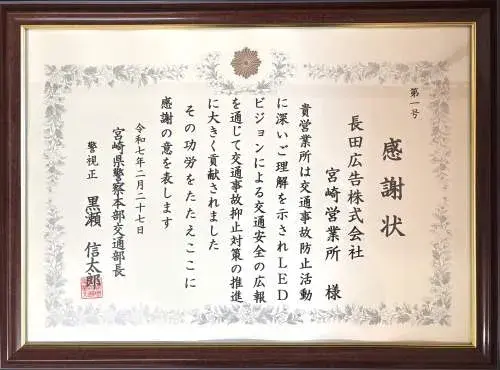 第一号
感謝状
長田広告株式会社
宮崎営業所 様
貴営業所は交通事故防止活動
に深いご理解を示されLED
ビジョンによる交通安全の広報
を通じて交通事故抑止対策の推進
に大きく貢献されました
その功労をたたえここに
感謝の意を表します
令和七年二月二十七日
宮崎県警察本部交通部長
警視正 黒瀬 信太郎